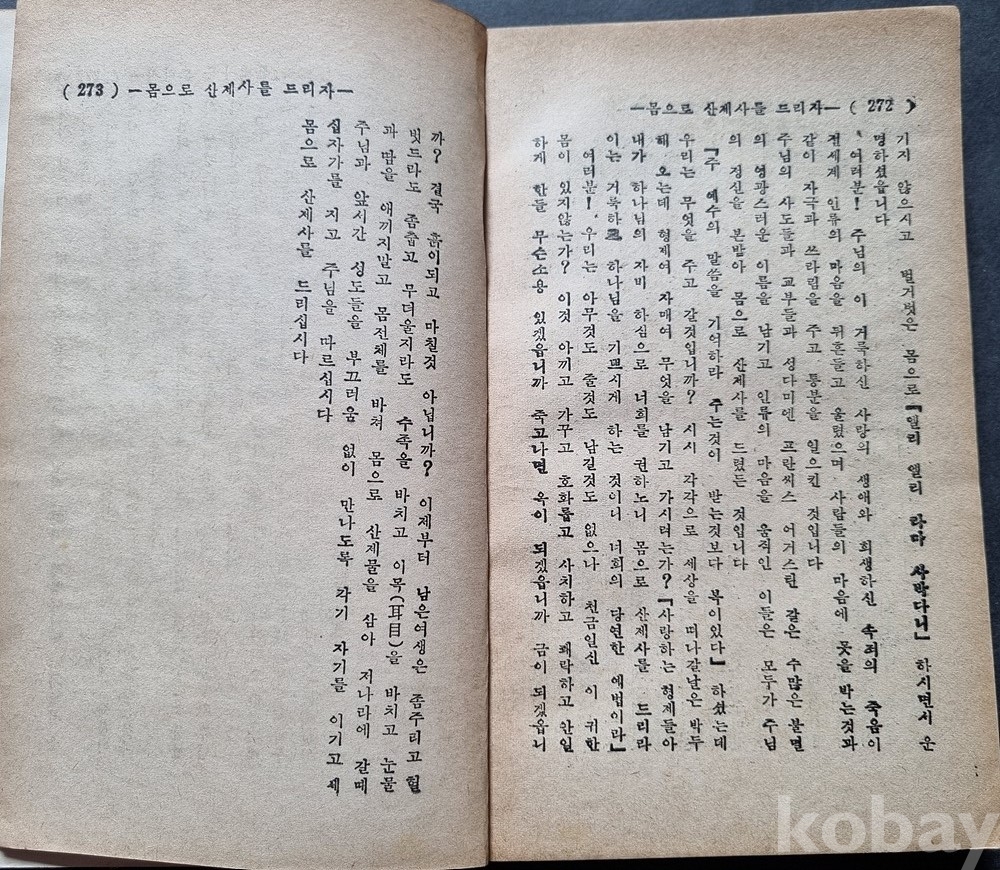 —몸으로 산제사를 드리자— ( 272 )
기지 않으시고 벌거벗은 몸으로『엘리 엘리 라마 사박다니』하시면서 운
명하셨읍니다
여러분! 주님의 이 거룩하신 사랑의 생애와 희생하신 속죄의 죽음이
전세계 인류의 마음을 뒤흔들고 울렸으며 사람들의 마음에 못을 박는것과
같이 자극과 쓰라림을 주고 통분을 일으킨 것입니다
주님의 사도들과 교부들과 성다미엔 프란씨스 어거스틴 같은 수많은 불멸
의 영광스러운 이름을 남기고 인류의 마음을 움직인 이들은 모두가 주님
의 정신을 본받아 몸으로 산제사를 드렸든 것입니다
『주 예수의 말씀을 기억하라 주는것이 받는것보다 복이있다』하셨는데
우리는 무엇을 주고 갈것입니까? 시시 각각으로 세상을 떠나갈날은 박두
해 오는데 형제여 자매여 무엇을 남기고 가시려는가?『사랑하는 형제들아
내가 하나님의 자미 하심으로 너희를 권하노니 몸으로 산제사를 드리라
이는 거룩하고 하나님을 기쁘시게 하는 것이니 너희의 당연한 예법이라』
여러분! 우리는 아무것도 줄것도 남길것도 없으나 천금일신 이 귀한
몸이 있지않는가? 이것 아끼고 가꾸고 호화롭고 사치하고 쾌락하고 안일
하게 한들 무슨소용 있겠읍니까 죽고나면 옥이 되겠읍니까 금이 되겠읍니
( 273 ) —몸으로 산제사를 드리자—
까? 결국 흙이되고 마칠것 아닙니까? 이제부터 남은여생은 좀주리고 헐
벗드라도 좀춥고 무더울지라도 수족을 바치고 이목(耳目)을 바치고 눈물
과 땀을 애끼지말고 몸전체를 바쳐 몸으로 산제물을 삼아 저나라에 갈때
주님과 앞서간 성도들을 부끄러움 없이 만나도록 각기 자기를 이기고 제
십자가를 지고 주님을 따르십시다
몸으로 산제사를 드리십시다
kobay